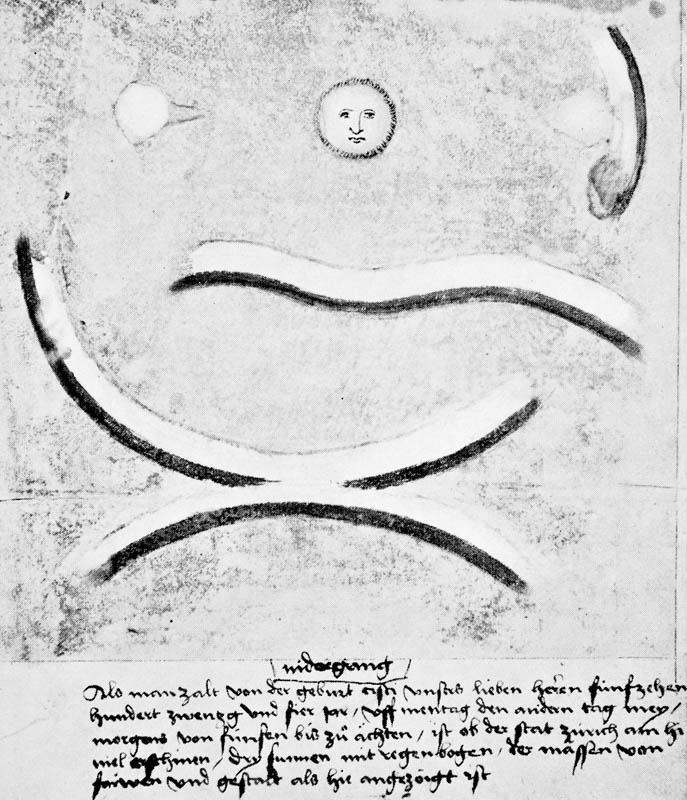 nidergang
Als man zalt von der geburt cristi unsers lieben heren fünfzehen
hundert zwenzg und fier jar / uff mentag den andern tag mey /
morgens von fünfen bis zů achten / ist ob der stat zürich am hi
mel erschinen / dry sunnen mit regenbogen / der massen von
farwen und gestalt als hie angezöigt ist